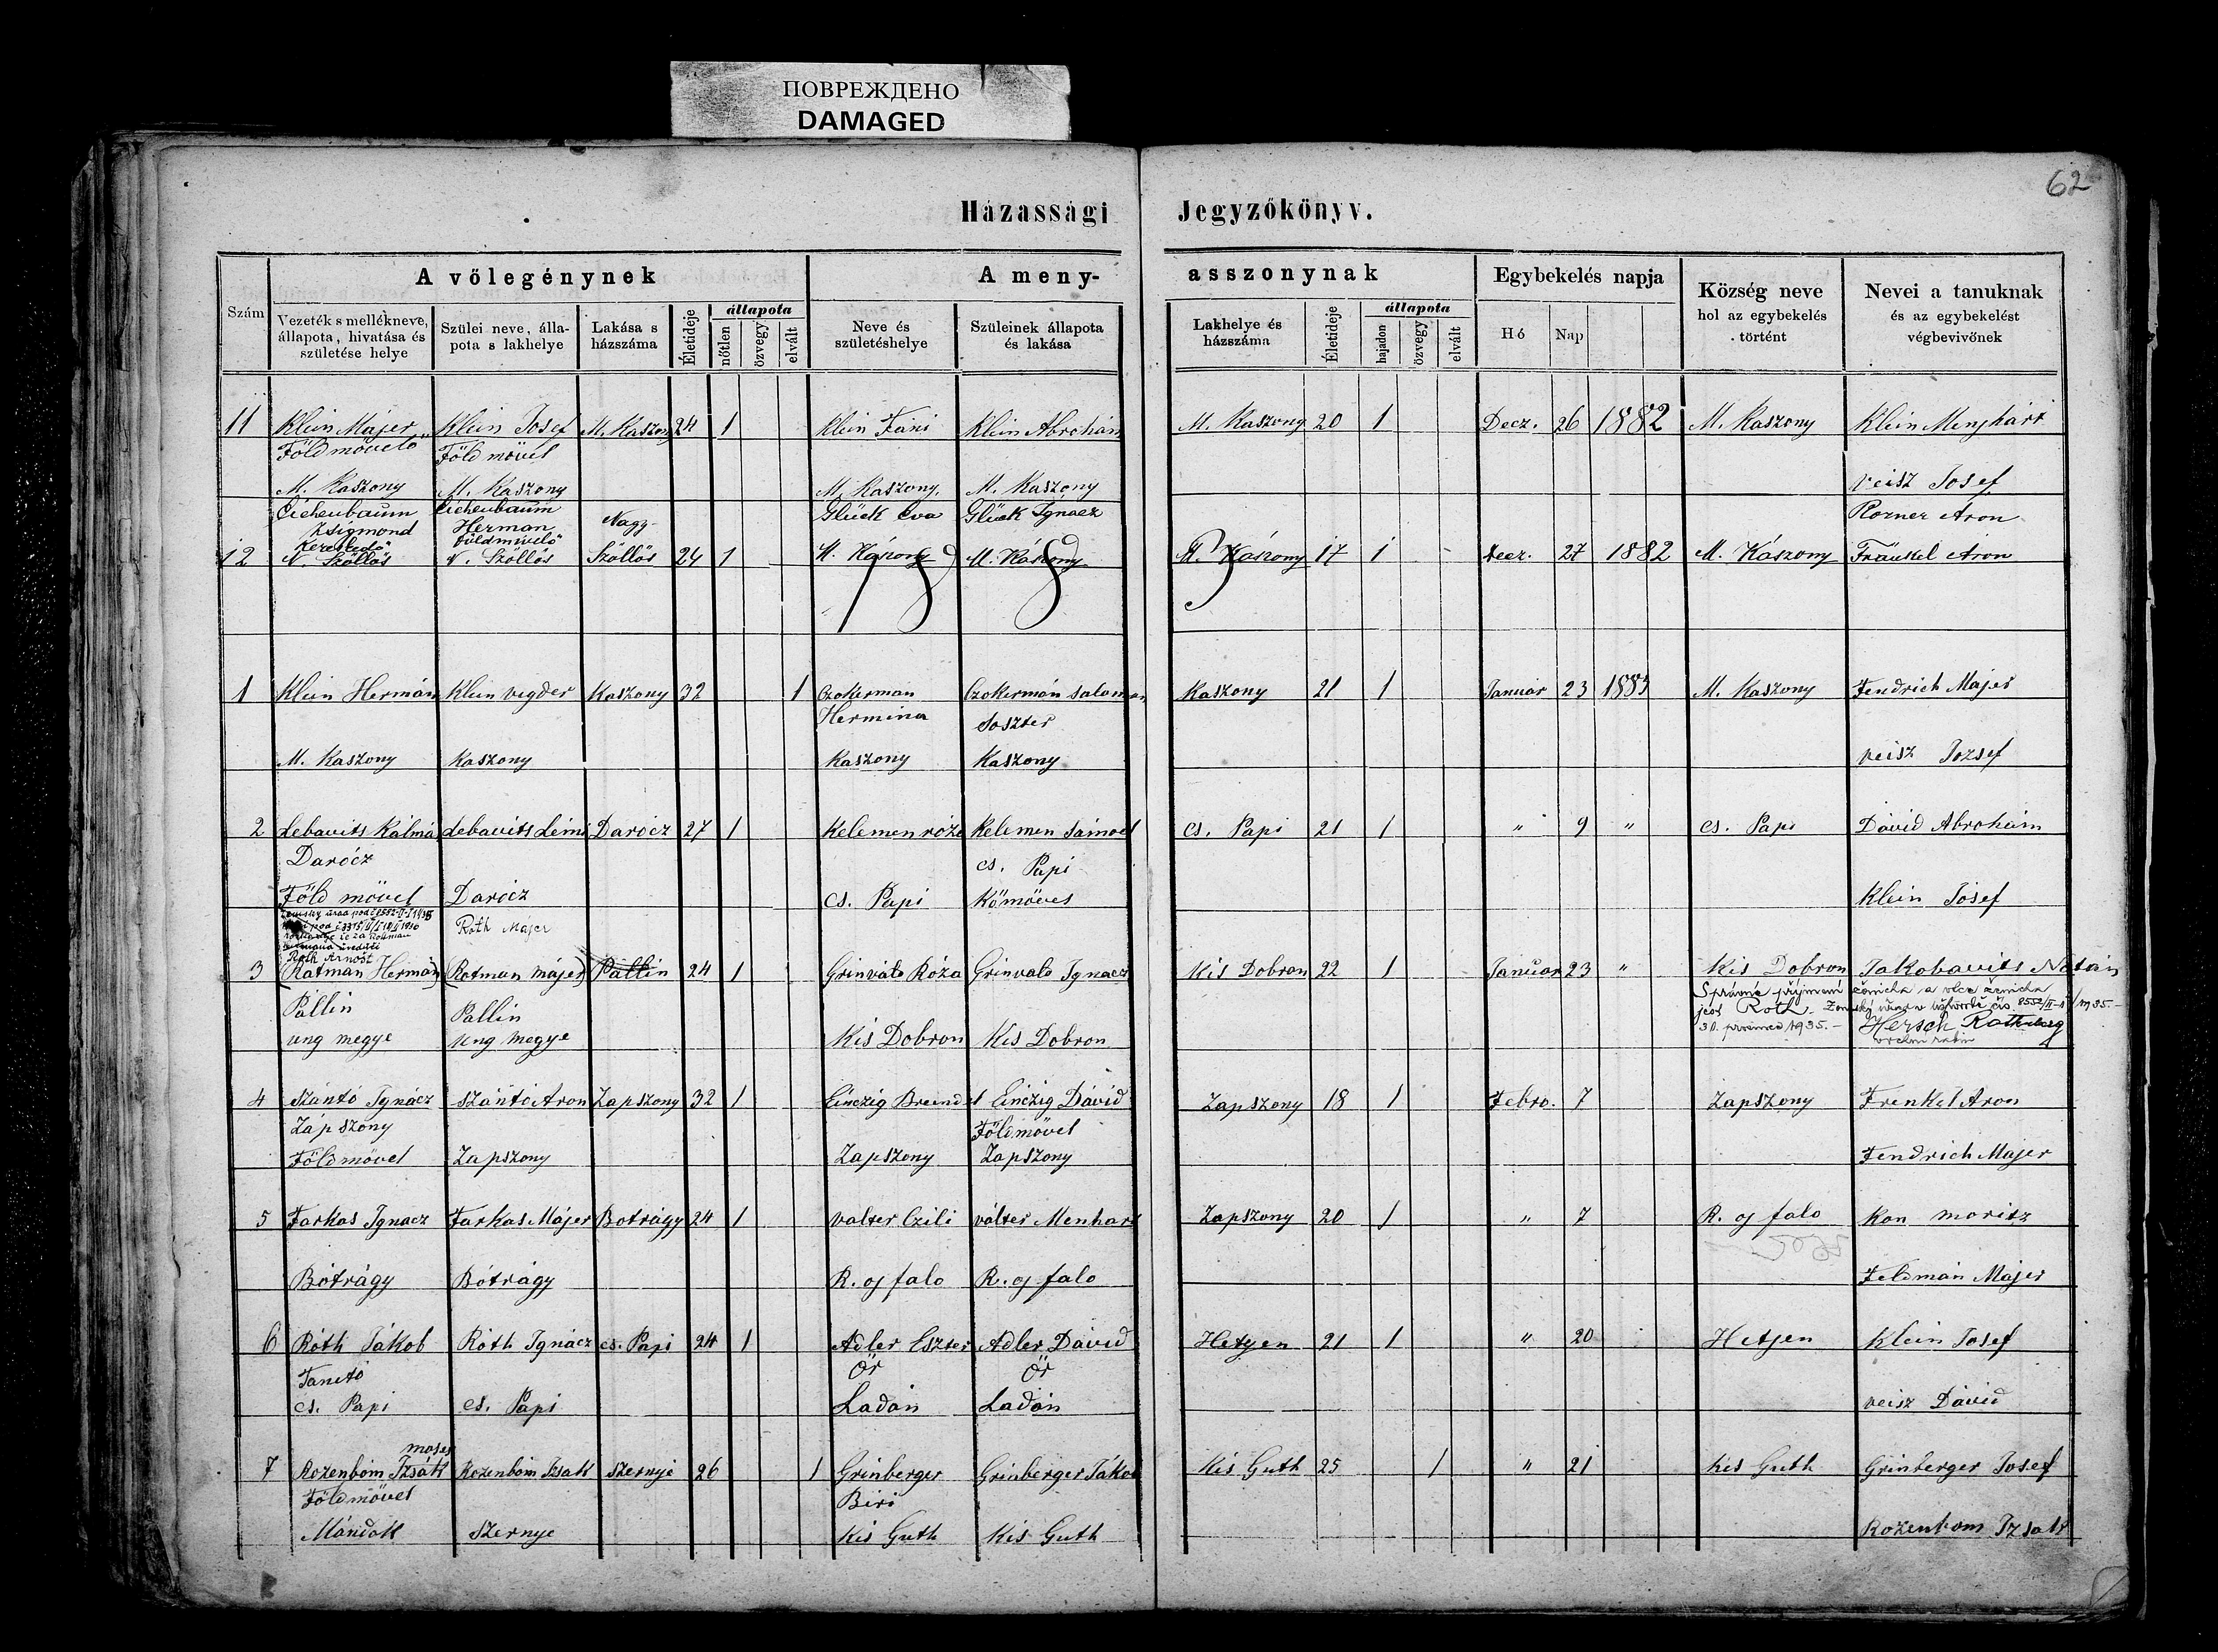 ПОВРЕЖДЕНО
DAMAGED
62
Házassági Jegyzőkönyv.
Szám
A vőlegénynek
Vezeték s mellékneve, állapota, hivatása és születése helye
Szülei neve, állapota s lakhelye
Lakása s házszáma
Életideje
állapota
nőtlen
özvegy
elvált
A menyasszonynak
Neve és születéshelye
Szüleinek állapota és lakása
Lakhelye és házszáma
Életideje
állapota
hajadon
özvegy
elvált
Egybekelés napja
Hó
Nap
Község neve hol az egybekelés történt
Nevei a tanuknak és az egybekelést végbevivőnek
11 Klein Májer Klein Josef M. Kaszony 24 1 Klein Fáni Klein Abrohám M. Kaszony 20 1 Decz. 26 1882 M. Kaszony Klein Menyhárt
Földmövelö Föld mövel
M. Kaszony M. Kaszony M. Kaszony. M. Kaszony veisz Josef
Eichenbaum Eichenbaum Glück Eva Glück Ignacz Rozner Aron
Zsigmond Herman Nagy-
Kereskedö földmivelö
12 N. Szöllös N. Szöllös Szöllös 24 1 M. Kászony M. Kászony M. Kászony 17 1 Decz. 27 1882 M. Kászony Fränkel Aron
1 Klein Hermán Klein vigder Kaszony 32 1 Czokerman Czokermán salomon Kaszony 21 1 Januar 23 1883 M. Kaszony Fendrich Majer
Hermina Soszter
M. Kaszony Kaszony Kaszony Kaszony veisz Jozsef
2 Lebavits Kálmá Lebavits Limi Darócz 27 1 Kelemen róza Kelemen Sámoel cs. Papi 21 1 " 9 " cs. Papi Dávid Abrohám
Darócz cs. Papi
Föld mövel Darócz cs. Papi Kömöves Klein Josef
Roth Májer
Roth Arnošt
3 (Rotman Hermán) (Rotman májer) Pallin 24 1 Grinvald Róza Grinvald Ignacz Kis Dobron 22 1 Januar 23 " Kis Dobron Jakobavits Nátán
Pallin Pallin
ung megye Ung megye Kis Dobron Kis Dobron
Správné příjmení ženicha a otce ženicha
jest Roth. Zemský úřad v Užhorodě čis. 8552/II-1/1935.-
30. prosince 1935.- Hersch Rothberg
4 Szántó Ignácz Szántó Aron Zapszony 32 1 Einczig Breindel Einczig Dávid Zapszony 18 1 Febro. 7 Zapszony Frenkel Aron
Zápszony Földmövel
Földmövel Zapszony Zapszony Zapszony Fendrich Majer
5 Farkas Ignacz Farkas Májer Botrágy 24 1 valter Czili válter Menhart Zapszony 20 1 " 7 R. oj falo Kon moritz
Bótrágy Bótrágy R. oj falo R. oj falo Feldmán Majer
6 Róth Jákob Róth Ignácz cs. Papi 24 1 Adler Eszter Adler Dávid Hetyen 21 1 " 20 Hetyen Klein Josef
Tanitó Ör Ör
cs. Papi cs. Papi Ladán Ladán veisz Dávid
moses
7 Rozenbóm Izsák Rozenbóm Izsak Szernye 26 1 Grinberger Grinberger Jákob Kis Guth 25 1 " 21 Kis Guth Grinberger Josef
Földmövel Biri
Mándok Szernye Kis Guth Kis Guth Rozenbom Izsak